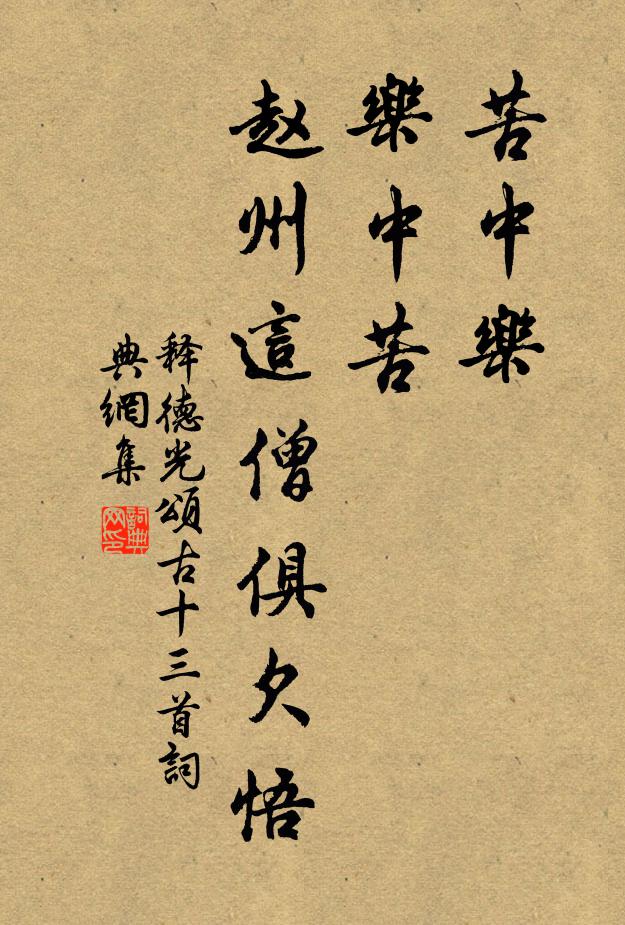 苦中樂
樂中苦
赵州這僧俱欠悟
释德光頌古十三首詞
典網集
詞典
网印